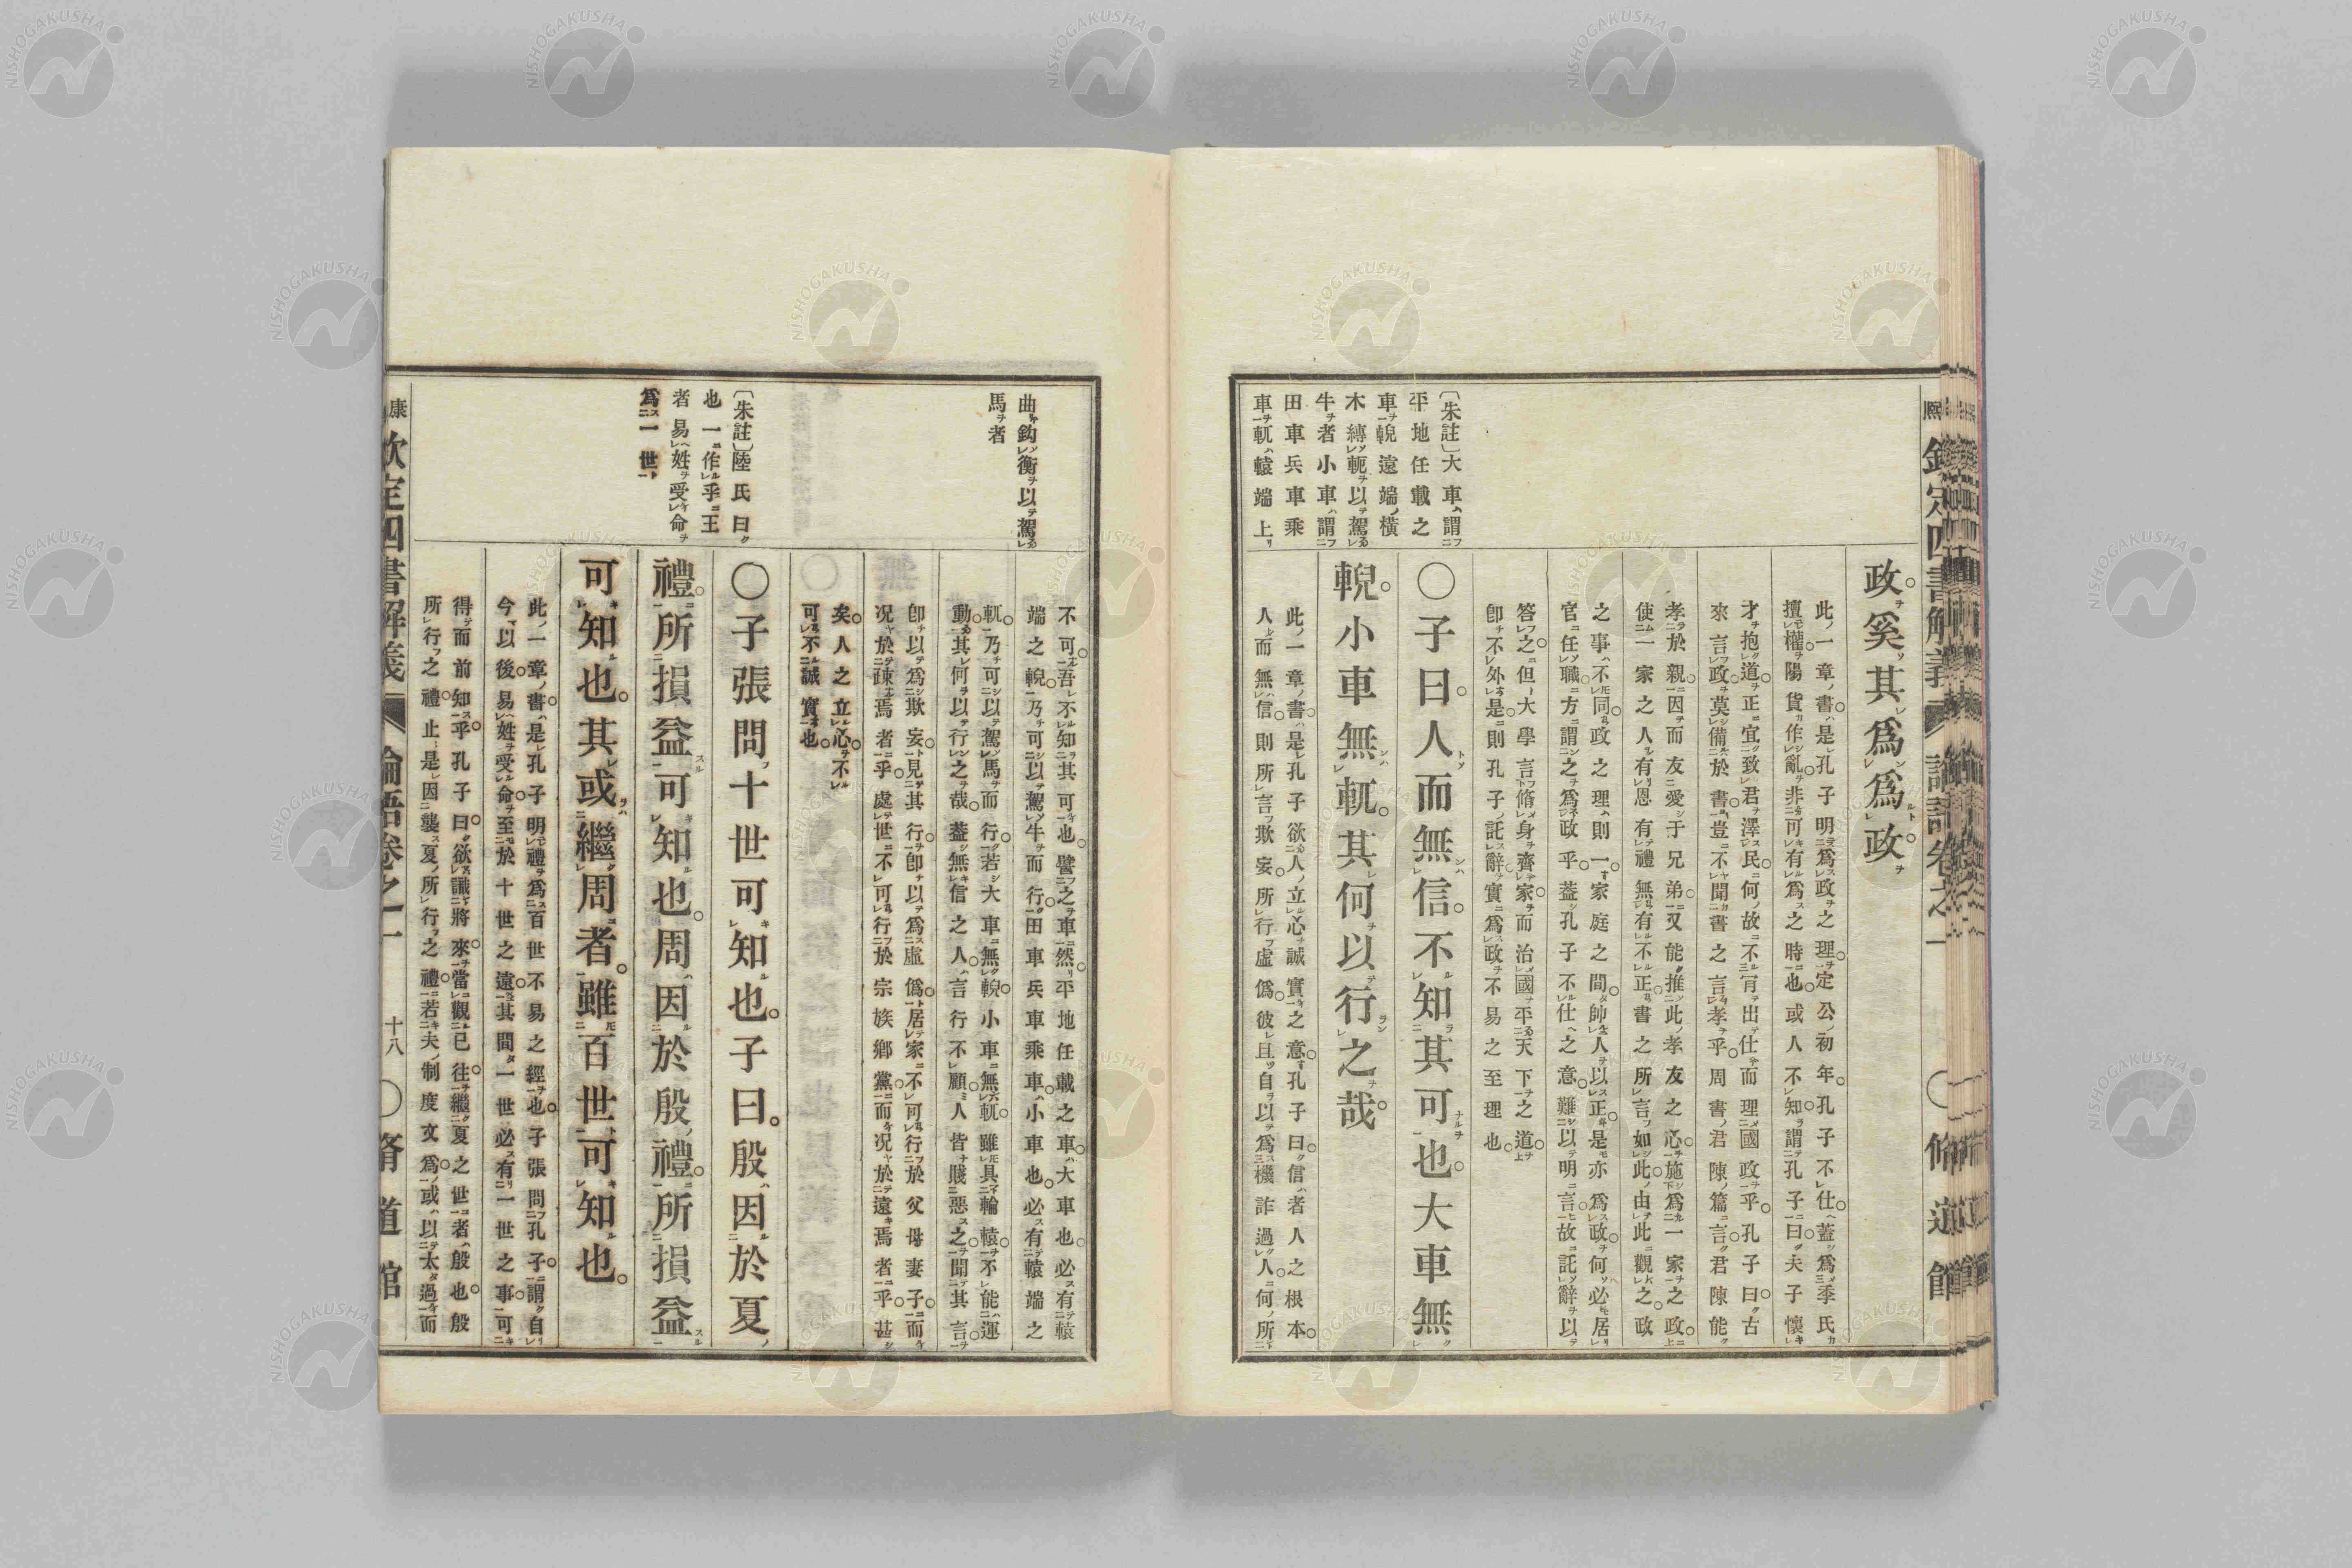 政奚其爲爲政
此一章書是孔子明爲政之理定公初年孔子不仕蓋爲季氏
擅權陽貨作亂非可有爲之時也或人不知謂孔子曰夫子懷
才抱道正宜致君澤民何故不肯出仕而理國政乎孔子曰古
來言政莫備於書豈不聞書之言孝乎周書君陳篇言君陳能
孝於親因而友愛于兄弟又能推此孝友之心施爲一家之政
使一家之人有恩有禮無有不正書之所言如此由此觀之政
之事不同政之理則一家庭之間帥人以正是亦爲政何必居
官任職方謂之爲政乎蓋孔子不仕之意難以明言故託辭以
答之但大學言脩身齊家而治國平天下之道
卽不外是則孔子託辭實爲政不易之至理也
〇子曰人而無信不知其可也大車無
輗小車無軏其何以行之哉
此一章書是孔子欲人立心誠實之意孔子曰信者人之根本
人而無信則所言欺妄所行虛僞彼且自以爲機詐過人何所
〔朱註〕大車謂
平地任載之
車輗遠端橫
木縛軛以駕
牛者小車謂
田車兵車乘
車軏轅端上
不可吾不知其可也譬之車然平地任載之車大車也必有轅
端之輗乃可以駕牛而行田車兵車乘車小車也必有轅端之
軏乃可以駕馬而行若大車無輗小車無軏雖具輪轅不能運
動其何以行之哉蓋無信之人言行不顧人皆賤惡之聞其言
卽以爲欺妄見其行卽以爲虛僞居家不可行於父母妻子而
況於疎焉者乎處世不可行於宗族鄉黨而況於遠焉者乎甚
矣人之立心不
可不誠實也
曲鈎衡以駕
馬者
〇子張問十世可知也子曰殷因於夏
禮所損益可知也周因於殷禮所損益
可知也其或繼周者雖百世可知也
此一章書是孔子明禮爲百世不易之經也子張問孔子謂自
今以後易姓受命至於十世之遠其間一世必有一世之事可
得而前知乎孔子曰欲識將來當觀已往繼夏之世者殷也殷
所行之禮止是因襲夏所行之禮若夫制度文爲或以太過而
〔朱註〕陸氏曰
也一作乎王
者易姓受命
爲一世
欽定四書解義
論語卷之一
十八
〇脩道館